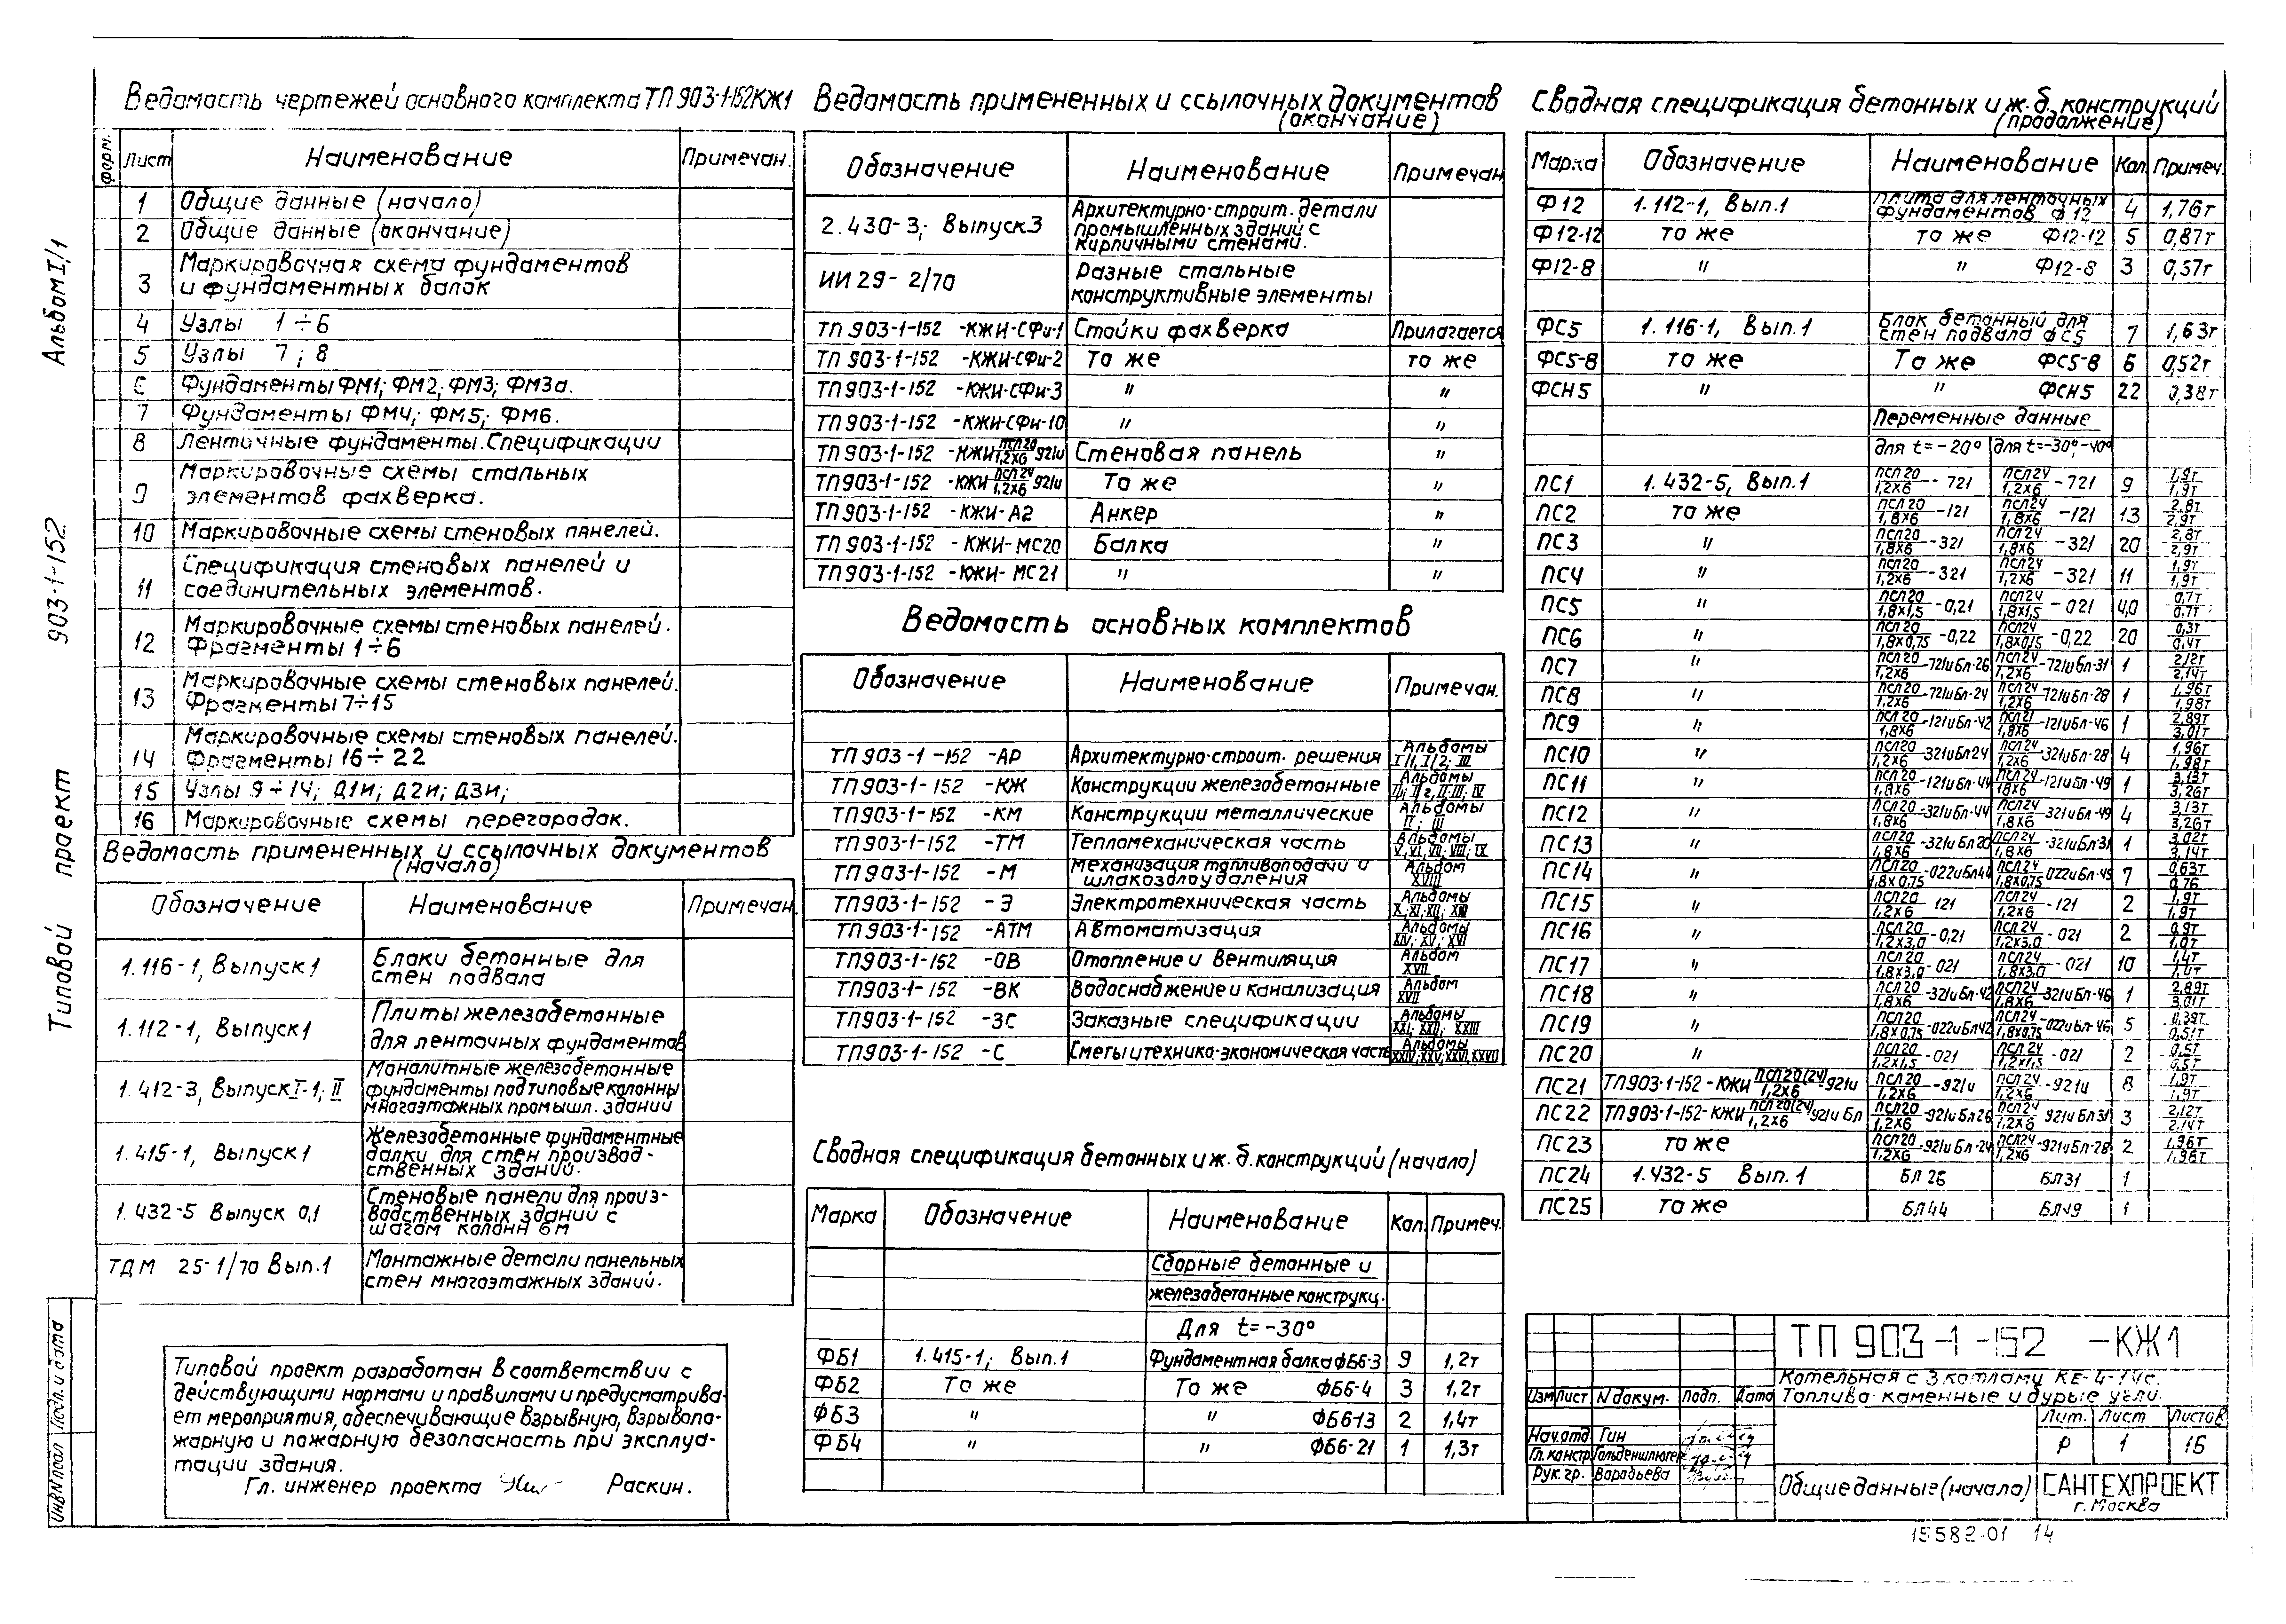 Альбом I/1
903-1-152
Типовой проект
Ведомость чертежей основного комплекта ТП 903-1-152КЖ1
форм. Лист Наименование Примечан.
1 Общие данные (начало)
2 Общие данные (окончание)
3 Маркировочная схема фундаментов
и фундаментных балок
4 Узлы 1÷6
5 Узлы 7; 8
6 Фундаменты ФМ1; ФМ2; ФМ3; ФМ3а.
7 Фундаменты ФМ4; ФМ5; ФМ6.
8 Ленточные фундаменты. Спецификации
9 Маркировочные схемы стальных
элементов фахверка.
10 Маркировочные схемы стеновых панелей.
11 Спецификация стеновых панелей и
соединительных элементов.
12 Маркировочные схемы стеновых панелей.
Фрагменты 1÷6
13 Маркировочные схемы стеновых панелей.
Фрагменты 7÷15
14 Маркировочные схемы стеновых панелей.
Фрагменты 16÷22
15 Узлы 9÷14; Д1и; Д2и; Д3и;
16 Маркировочные схемы перегородок.
Ведомость примененных и ссылочных документов
(начало)
Обозначение Наименование Примечан.
1.116-1, Выпуск 1 Блоки бетонные для
стен подвала
1.112-1, Выпуск 1 Плиты железобетонные
для ленточных фундаментов
1.412-3, Выпуск I-1; II Монолитные железобетонные
фундаменты под типовые колонны
многоэтажных промышл. зданий
1.415-1, Выпуск 1 Железобетонные фундаментные
балки для стен производ-
ственных зданий.
1.432-5 Выпуск 0,1 Стеновые панели для произ-
водственных зданий с
шагом колонн 6м
ТДМ 25-1/70 Вып.1 Монтажные детали панельных
стен многоэтажных зданий.
Типовой проект разработан в соответствии с
действующими нормами и правилами и предусматрива-
ет мероприятия, обеспечивающие взрывную, взрывопо-
жарную и пожарную безопасность при эксплуа-
тации здания.
Гл. инженер проекта Раскин.
Инв N подл Подп. и дата
Ведомость примененных и ссылочных документов
(окончание)
Обозначение Наименование Примечан
2.430-3; Выпуск 3 Архитектурно-строит. детали
промышленных зданий с
кирпичными стенами.
ИИ 29-2/70 Разные стальные
конструктивные элементы
ТП 903-1-152 -КЖИ-СФи-1 Стойки фахверка Прилагается
ТП 903-1-152 -КЖИ-СФи-2 То же то же
ТП 903-1-152 -КЖИ-СФи-3 " "
ТП 903-1-152 -КЖИ-СФи-10 " "
ТП 903-1-152 -КЖИ ПСЛ20/1,2х6 921и Стеновая панель "
ТП 903-1-152 -КЖИ ПСЛ24/1,2х6 921и То же "
ТП 903-1-152 -КЖИ-А2 Анкер "
ТП 903-1-152 -КЖИ-МС20 Балка "
ТП 903-1-152 -КЖИ-МС21 " "
Ведомость основных комплектов
Обозначение Наименование Примечан.
ТП 903-1-152 -АР Архитектурно-строит. решения Альбомы
I/1, I/2; III
ТП 903-1-152 -КЖ Конструкции железобетонные Альбомы
ТП 903-1-152 -КМ Конструкции металлические Альбомы
II; III
ТП 903-1-152 -ТМ Тепломеханическая часть Альбомы
V, VI, VII; VIII; IX
ТП 903-1-152 -М Механизация топливоподачи и
шлакозолоудаления Альбом
XVIII
ТП 903-1-152 -Э Электротехническая часть Альбомы
X; XI; XII; XIII
ТП 903-1-152 -АТМ Автоматизация Альбомы
XIV; XV; XVI
ТП 903-1-152 -ОВ Отопление и вентиляция Альбом
XVII
ТП 903-1-152 -ВК Водоснабжение и канализация Альбом
XVII
ТП 903-1-152 -ЗС Заказные спецификации Альбомы
XXI; XXII; XXIII
ТП 903-1-152 -С Сметы и технико-экономическая часть Альбомы
XXIV; XXV; XXVI, XXVII
Сводная спецификация бетонных и ж. б. конструкций (начало)
Марка Обозначение Наименование Кол. Примеч.
Сборные бетонные и
железобетонные конструкц.
Для t=-30°
ФБ1 1.415-1; Вып.1 Фундаментная балка ФБ6-3 9 1,2т
ФБ2 То же То же ФБ6-4 3 1,2т
ФБ3 " " ФБ6-13 2 1,4т
ФБ4 " " ФБ6-21 1 1,3т
Сводная спецификация бетонных и ж. б. конструкций
(продолжение)
Марка Обозначение Наименование Кол. Примеч.
Ф12 1.112-1, Вып.1 Плита для ленточных
фундаментов Ф12 4 1,76т
Ф12-12 то же то же Ф12-12 5 0,87т
Ф12-8 " " Ф12-8 3 0,57т
ФС5 1.116-1, Вып.1 Блок бетонный для
стен подвала ФС5 7 1,63т
ФС5-8 то же То же ФС5-8 6 0,52т
ФСН5 " " ФСН5 22 0,38т
Переменные данные
для t=-20° для t=-30°,-40°
ПС1 1.432-5, Вып.1 ПСЛ20/1,2х6 -721 ПСЛ24/1,2х6 -721 9 1,9т/1,9т
ПС2 то же ПСЛ20/1,8х6 -121 ПСЛ24/1,8х6 -121 13 2,8т/2,9т
ПС3 " ПСЛ20/1,8х6 -321 ПСЛ24/1,8х6 -321 20 2,8т/2,9т
ПС4 " ПСЛ20/1,2х6 -321 ПСЛ24/1,2х6 -321 11 1,9т/1,9т
ПС5 " ПСЛ20/1,8х1,5 -0,21 ПСЛ24/1,8х1,5 -021 4,0 0,7т/0,7т
ПС6 " ПСЛ20/1,8х0,75 -0,22 ПСЛ24/1,8х0,75 -0,22 20 0,3т/0,4т
ПС7 " ПСЛ20/1,2х6 -721иБл-26 ПСЛ24/1,2х6 -721иБл-31 1 2,12т/2,14т
ПС8 " ПСЛ20/1,2х6 -721иБл-24 ПСЛ24/1,2х6 721иБл-28 1 1,96т/1,98т
ПС9 " ПСЛ20/1,8х6 -121иБл-42 ПСЛ21/1,8х6 -121иБл-46 1 2,89т/3,01т
ПС10 " ПСЛ20/1,2х6 -321иБл24 ПСЛ24/1,2х6 -321иБл-28 4 1,96т/1,98т
ПС11 " ПСЛ20/1,8х6 -121иБл-44 ПСЛ24/18х6 -121иБл-49 1 3,13т/3,26т
ПС12 " ПСЛ20/1,8х6 -321иБл-44 ПСЛ24/1,8х6 -321иБл-49 4 3,13т/3,26т
ПС13 " ПСЛ20/1,8х6 -321иБл20 ПСЛ24/1,8х6 -321иБл31 1 3,02т/3,14т
ПС14 " ПСЛ20/1,8х0,75 -022иБл44 ПСЛ24/1,8х0,75 022иБл-49 7 0,63т/0,76
ПС15 " ПСЛ20/1,2х6 121 ПСЛ24/1,2х6 -121 2 1,9т/1,9т
ПС16 " ПСЛ20/1,2х3,0 -0,21 ПСЛ24/1,2х3,0 -021 2 0,9т/1,0т
ПС17 " ПСЛ20/1,8х3,0 -021 ПСЛ24/1,8х3,0 -021 10 1,4т/1,4т
ПС18 " ПСЛ20/1,8х6 -321иБл-42 ПСЛ24/1,8х6 -321иБл-46 1 2,89т/3,01т
ПС19 " ПСЛ20/1,8х0,75 -022иБл42 ПСЛ24/1,8х0,75 -022иБл-46 5 0,39т/0,51т
ПС20 " ПСЛ20/1,2х1,5 -021 ПСЛ24/1,2х1,5 -021 2 0,5т/0,5т
ПС21 ТП903-1-152-КЖИ ПСЛ20(24)/1,2х6 -921и ПСЛ20/1,2х6 -921и ПСЛ24/1,2х6 -921и 8 1,9т/1,9т
ПС22 ТП903-1-152-КЖИ ПСЛ20(24)/1,2х6 921и Бл ПСЛ20/1,2х6 -921иБл26 ПСЛ24/1,2х6 921иБл31 3 2,12т/2,14т
ПС23 то же ПСЛ20/1,2х6 -921иБл-24 ПСЛ24/1,2х6 -921иБл-28 2 1,96т/1,96т
ПС24 1.432-5 Вып.1 БЛ 26 БЛ31 1
ПС25 то же БЛ44 БЛ49 1
ТП 903-1-152 -КЖ1
Котельная с 3 котлами КЕ-4-14с.
Топливо каменные и бурые угли.
Изм Лист N докум. Подп. Дата
Лит. Лист Листов
Р 1 16
Нач. отд Гин
Гл. констр Гольденшлюгер
Рук. гр. Воробьева
Общие данные (начало)
САНТЕХПРОЕКТ
г. Москва
15582-01 14